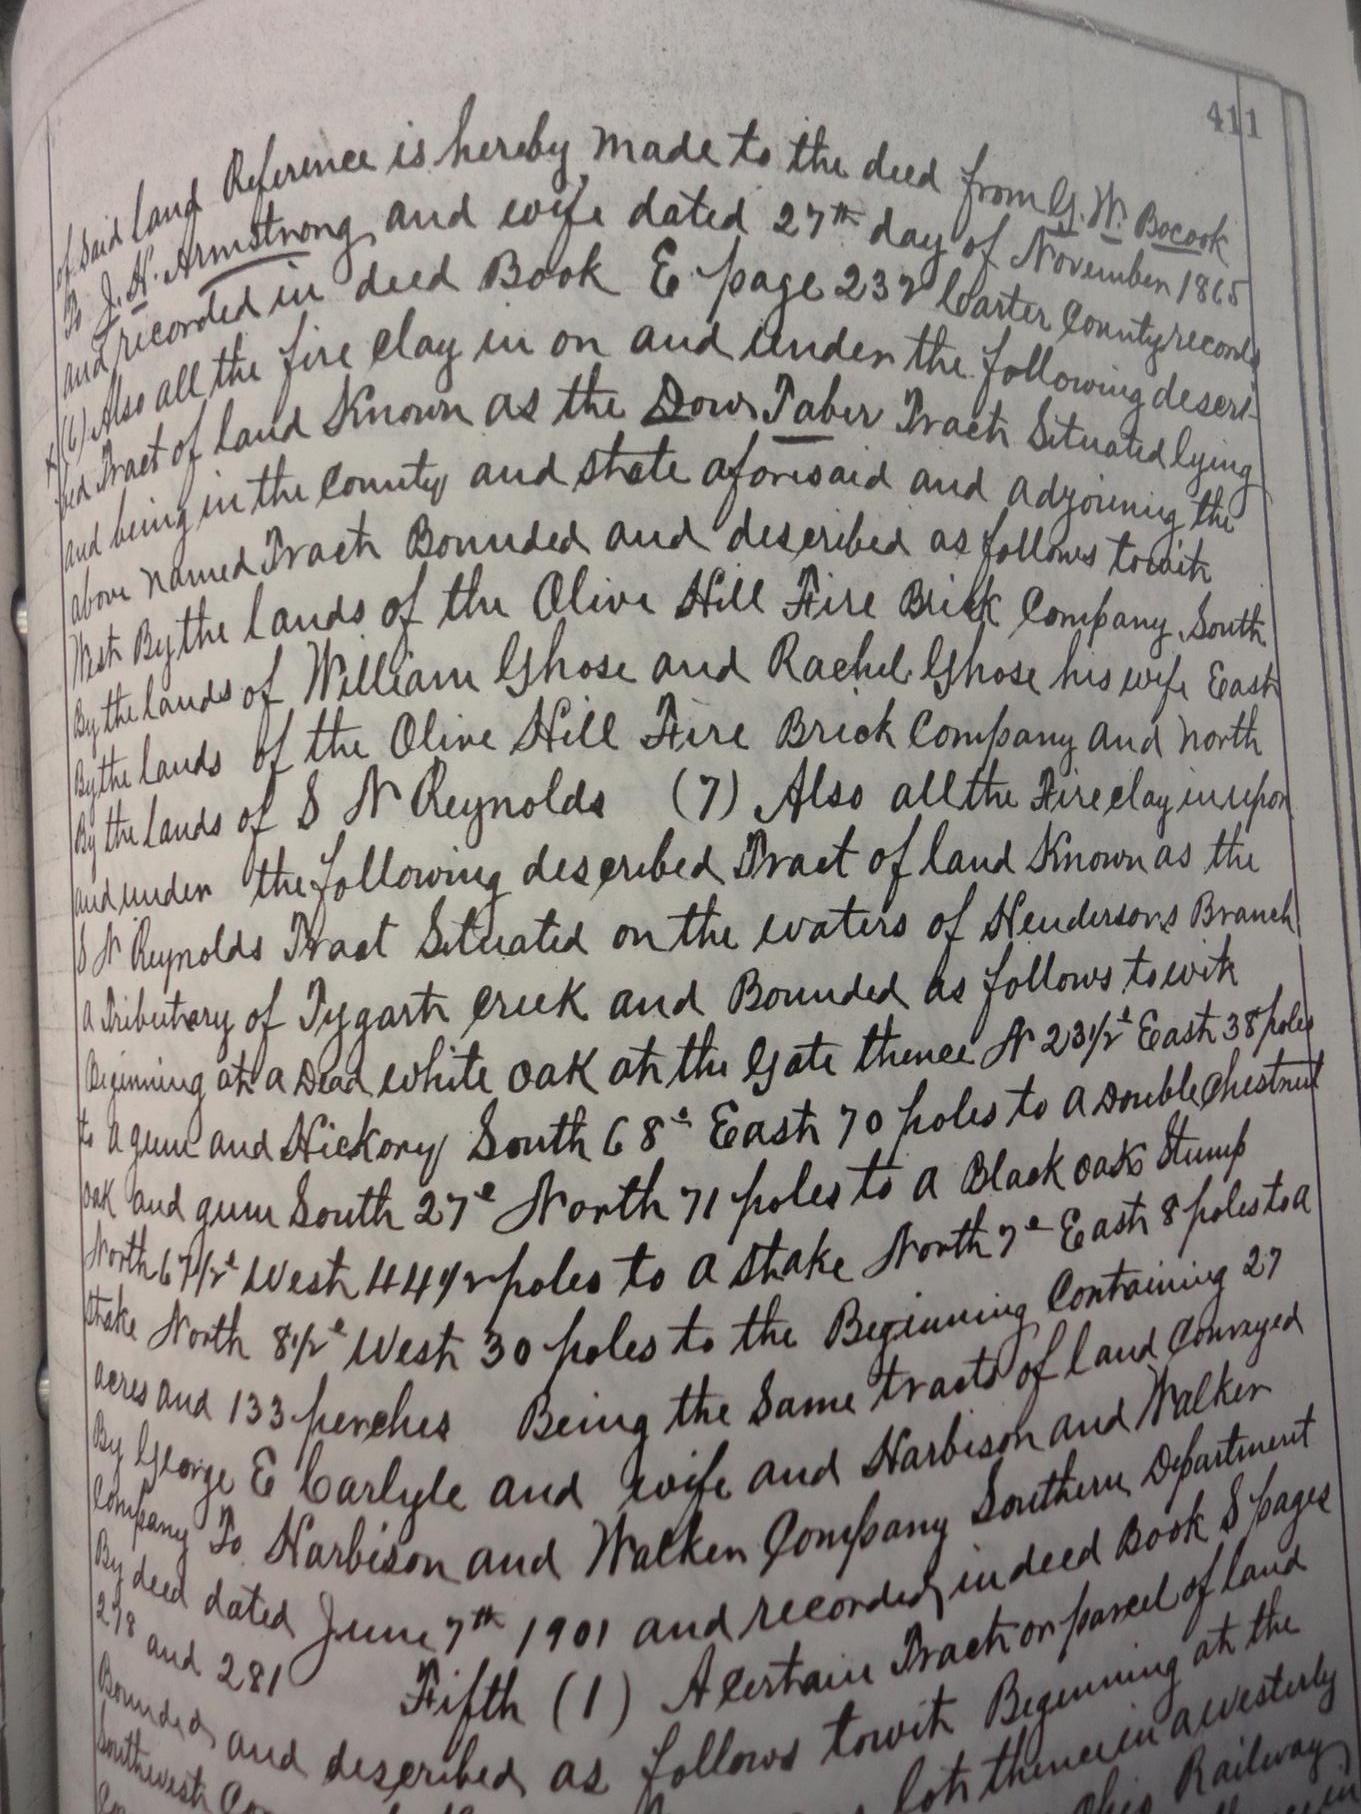 411
of said land Reference is hereby made to the deed from G. W. Bocook
To J. H. Armstrong and wife dated 27th day of November 1865
and recorded in deed Book E page 232 Carter County records
x (6) Also all the fire clay in on and under the following descri-
bed Tract of land Known as the Dow Taber Tract Situated lying
and being in the County and state aforesaid and adjoining the
above named Tract Bounded and described as follows towit
West By the lands of the Olive Hill Fire Brick Company South
By the lands of William Ghose and Rachel Ghose his wife East
By the lands of the Olive Hill Fire Brick Company and North
By the lands of S N Reynolds (7) Also all the Fire clay in upon
and under the following described Tract of land Known as the
S N Reynolds Tract Situated on the waters of Hendersons Branch
a Tributary of Tygart Creek and Bounded as follows towit
Beginning at a Dead white oak at the Gate thence N 23 1/2° East 38 poles
to a gum and Hickory South 68° East 70 poles to a Double Chestnut
oak and gum South 27° North 71 poles to a Black oak Stump
North 67 1/2° West 44 1/2 poles to a stake North 7° East 8 poles to a
stake North 8 1/2° West 30 poles to the Beginning Containing 27
acres and 133 perches Being the Same tracts of land Conveyed
By George E Carlyle and wife and Harbison and Walker
Company To Harbison and Walker Company Southern Department
By deed dated June 7th 1901 and recorded in deed Book S pages
278 and 281 Fifth (1) A certain Tract or parcel of land
Bounded and described as follows towit Beginning at the
Southwest lot thence in a westerly
Ohio Railway
in